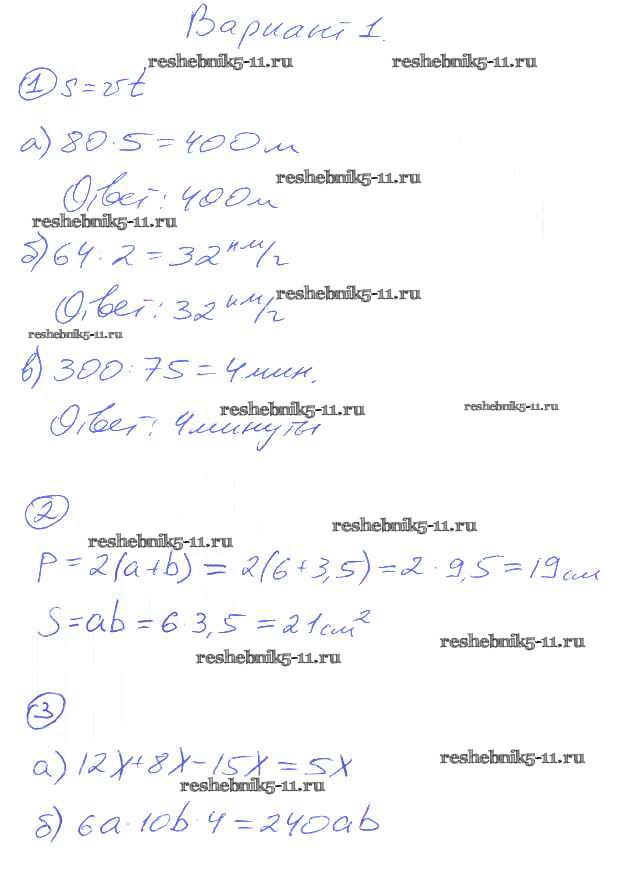 Вариант 1.
reshebnik5-11.ru reshebnik5-11.ru
1 s=vt
а) 80·5=400м
reshebnik5-11.ru
Ответ: 400м
reshebnik5-11.ru
б) 64·2=32 км/г
reshebnik5-11.ru
Ответ: 32 км/г
reshebnik5-11.ru
в) 300:75=4мин.
reshebnik5-11.ru reshebnik5-11.ru
Ответ: 4минуты
2
reshebnik5-11.ru
reshebnik5-11.ru
P=2(a+b)=2(6+3,5)=2·9,5=19см
S=ab=6·3,5=21см²
reshebnik5-11.ru
reshebnik5-11.ru
3
а) 12x+8x-15x=5x
reshebnik5-11.ru
reshebnik5-11.ru
б) 6a·10b·4=240ab